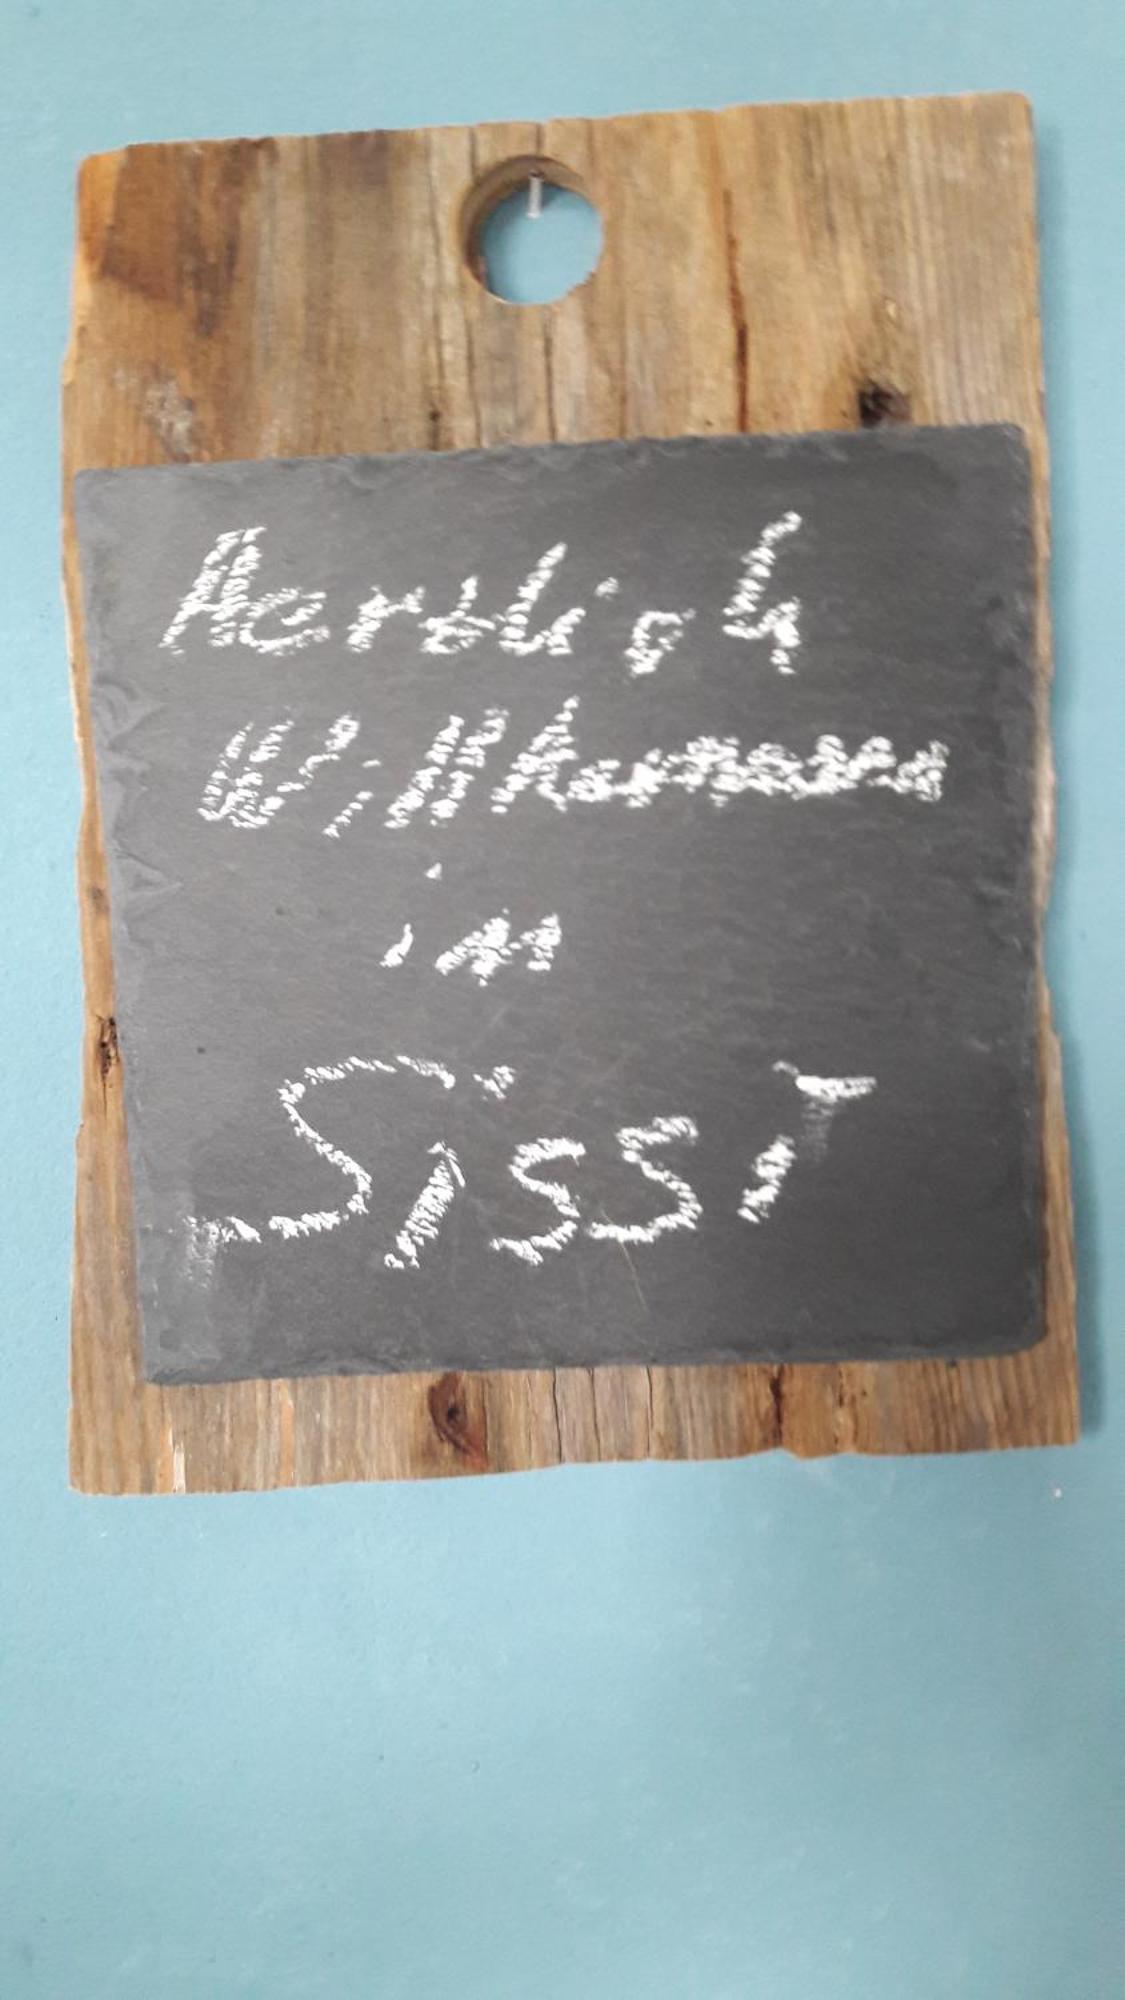 Herzlich
Willkommen
im
Sissi